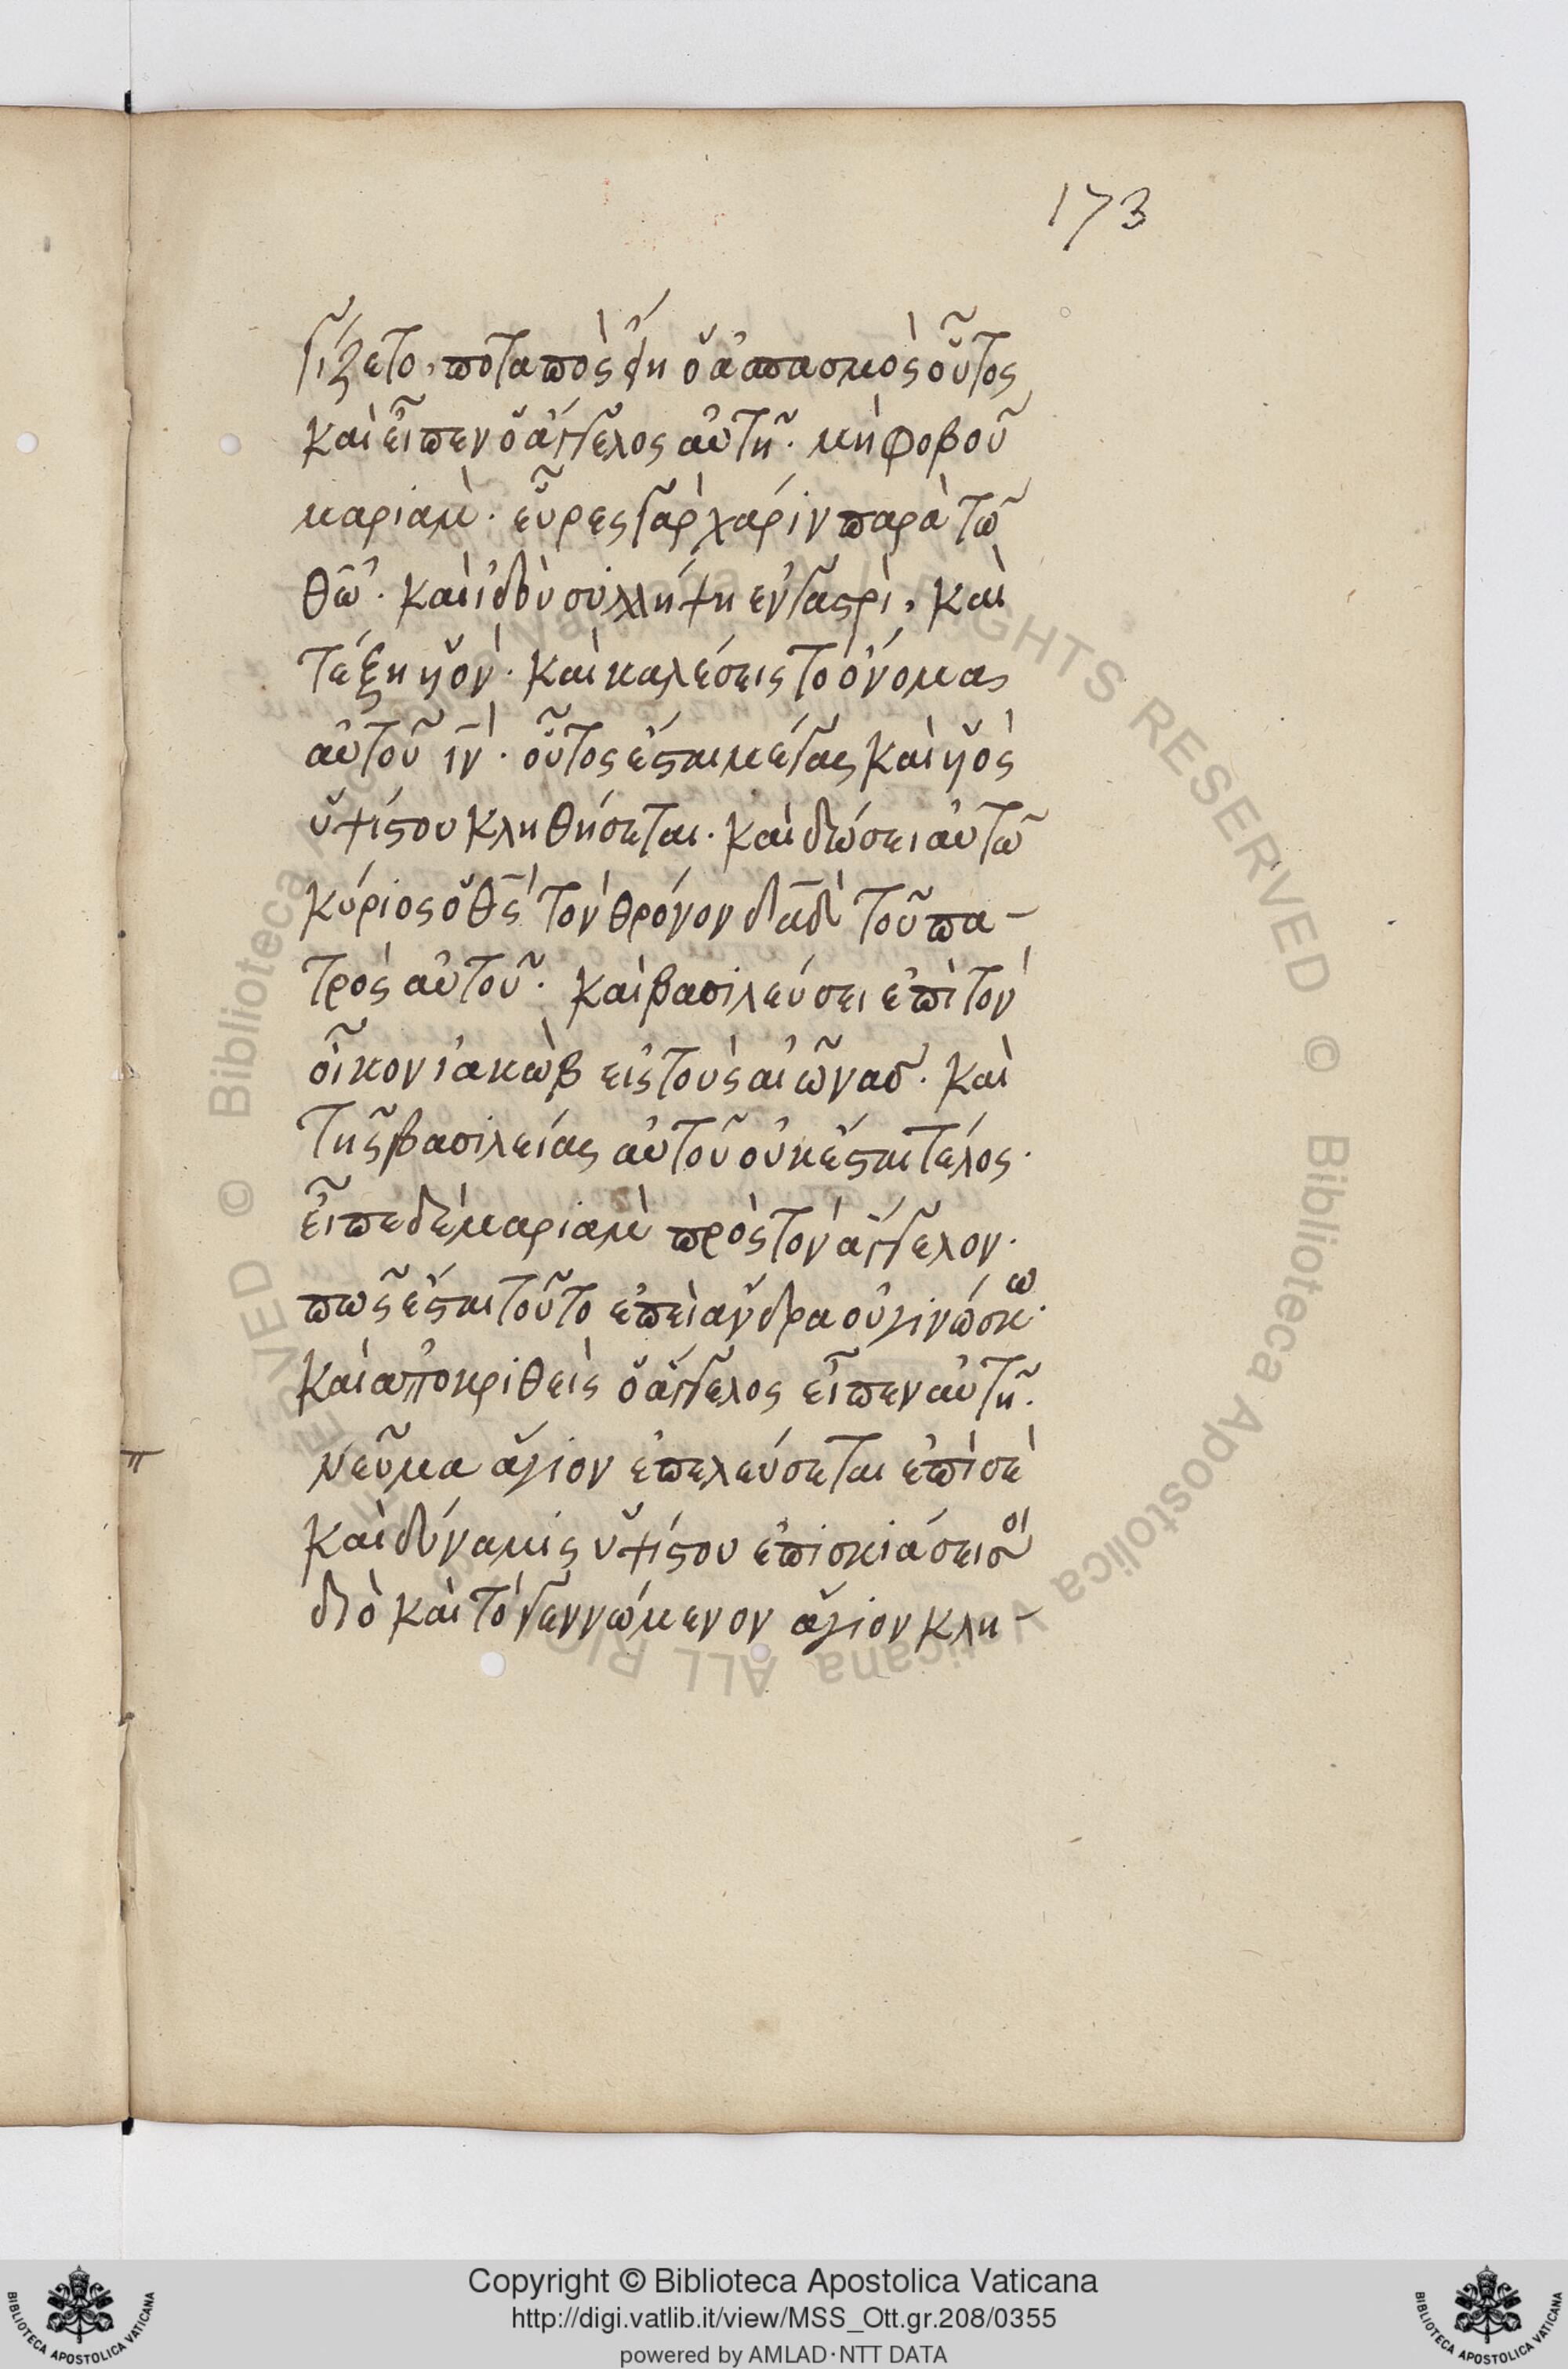 173
γίζετο, ποταπὸς εἴη ὁ ἀσπασμὸς οὗτος
καὶ εἶπεν ὁ ἄγγελος αὐτῆ. μὴ φοβοῦ
μαριὰμ. εὗρες γὰρ χάριν παρὰ τῶ
θ̅ω̅. καὶ ἰδοὺ συλλήψη ἐν γαστρὶ, καὶ
τέξη υἱὸν. καὶ καλέσεις τὸ ὄνομα
αὐτοῦ ι̅ν̅. οὗτος ἔσται μέγας καὶ υἱὸς
ὑψίστου κληθήσεται. καὶ δώσει αὐτῶ
κύριος ὁ θ̅ς̅ τὸν θρόνον δ̅α̅δ̅ τοῦ πα-
τρὸς αὐτοῦ. καὶ βασιλεύσει ἐπὶ τὸν
οἶκον ἰακὼβ εἰς τοὺς αἰῶνας. καὶ
τῆς βασιλείας αὐτοῦ οὐκ ἔσται τέλος.
εἶπε δὲ μαριὰμ πρὸς τὸν ἄγγελον.
πῶς ἔσται τοῦτο ἐπεὶ ἄνδρα οὐ γινώσκω.
καὶ ἀποκριθεὶς ὁ ἄγγελος εἶπεν αὐτῆ.
π νεῦμα ἅγιον ἐπελεύσεται ἐπὶ σὲ
καὶ δύναμις ὑψίστου ἐπισκιάσει σοι
διὸ καὶ τὸ γεννώμενον ἅγιον κλη-
Copyright © Biblioteca Apostolica Vaticana
http://digi.vatlib.it/view/MSS_Ott.gr.208/0355
powered by AMLAD·NTT DATA